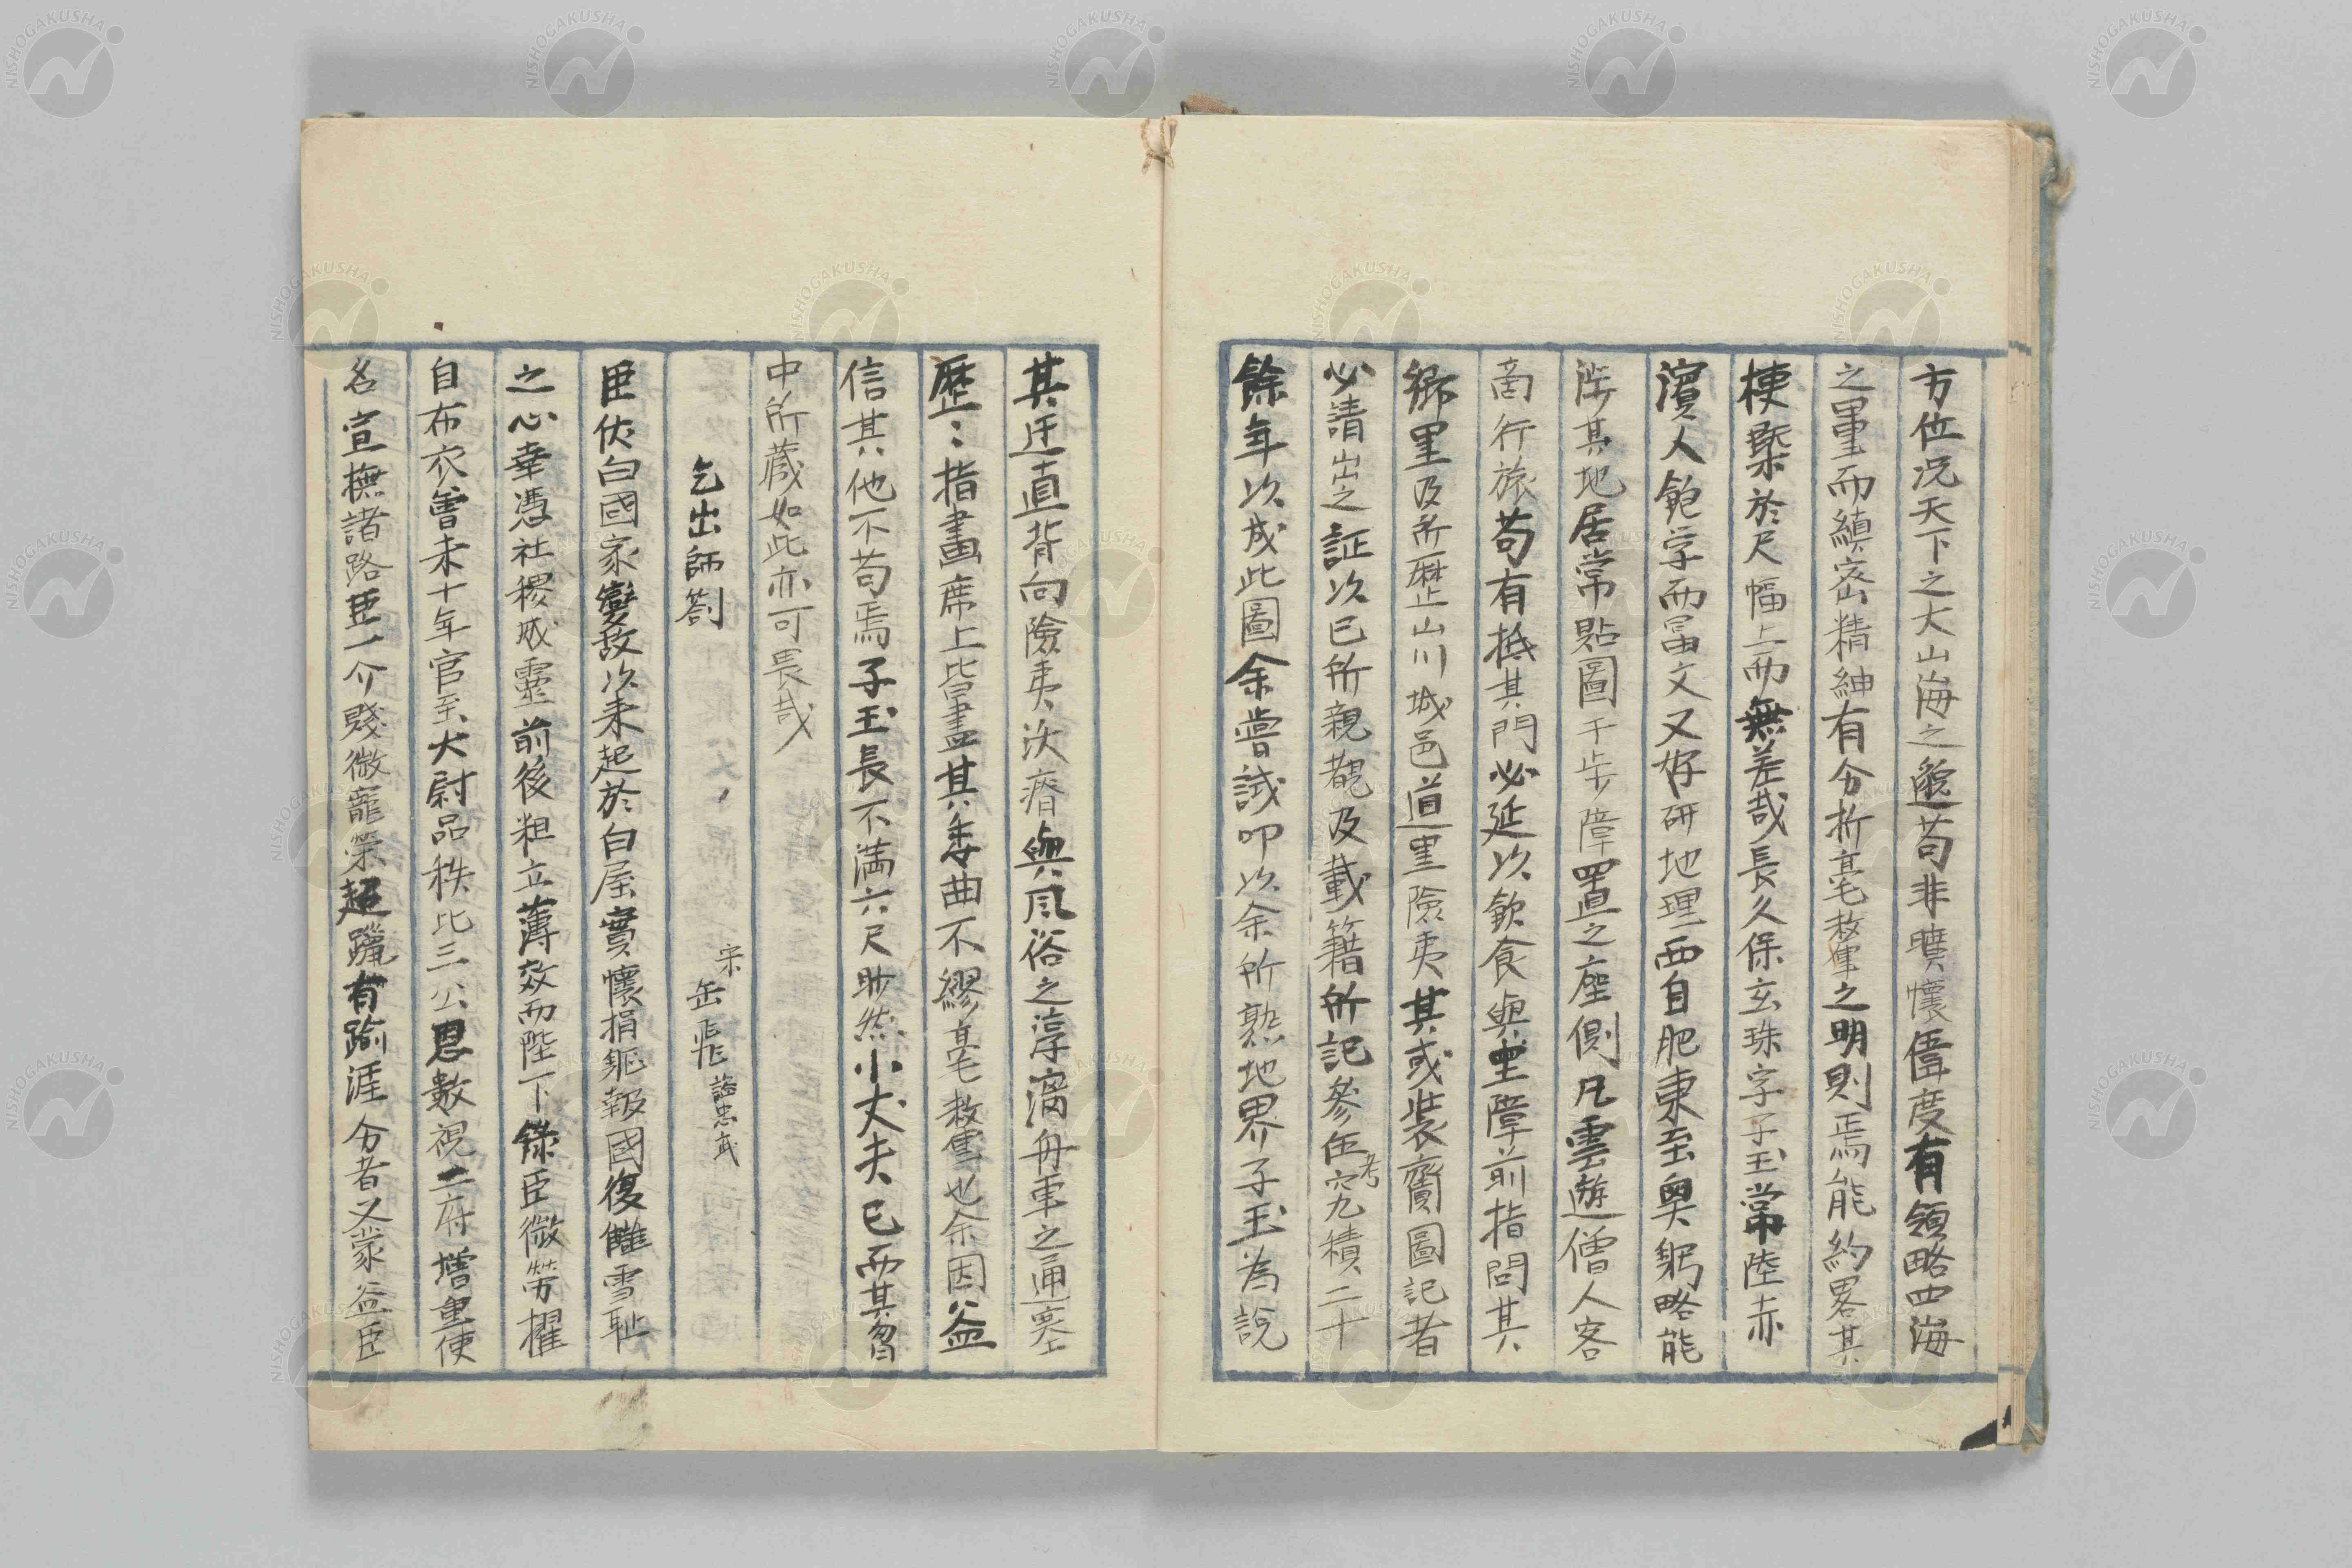 方位况天下之大山海之邈苟非曠懷偉度有領略四海
之量而縝密精紳有分折毫釐之明則焉能約畧其
梗槩於尺幅上而無差哉長久保玄珠字子玉常陸赤
濱人飽学而富文又好研地理西自肥東至奥躬略能
渉其地居常貼圖于歩障置之座側凡雲遊僧人客
商行旅苟有抵其門必延以飲食與坐障前指問其
鄉里及所歷山川城邑道里險夷其或装齎圖記者
必請出之証以已所親覩及載籍所記參伍考究積二十
餘年以成此圖余嘗試叩以余所熟地界子玉為說
其迂直背向險夷沃瘠與風俗之淳漓舟車之通塞
歷々指畫席上皆盡其委曲不繆毫釐也余因益
信其他不苟焉子玉長不滿六尺眇然小丈夫已而其胷
中所蔵如此亦可畏哉
乞出師劄
宋 岳飛 諡忠武
臣伏白國家變故以来起於白屋實懷捐軀報國復讎雪耻
之心幸憑社稷威靈前後粗立薄效而陛下錄臣微勞擢
自布衣曾未十年官至太尉品秩比三公恩數視二府增重使
名宣撫諸路臣一介賤微寵榮超躐有踰涯分者又蒙益臣